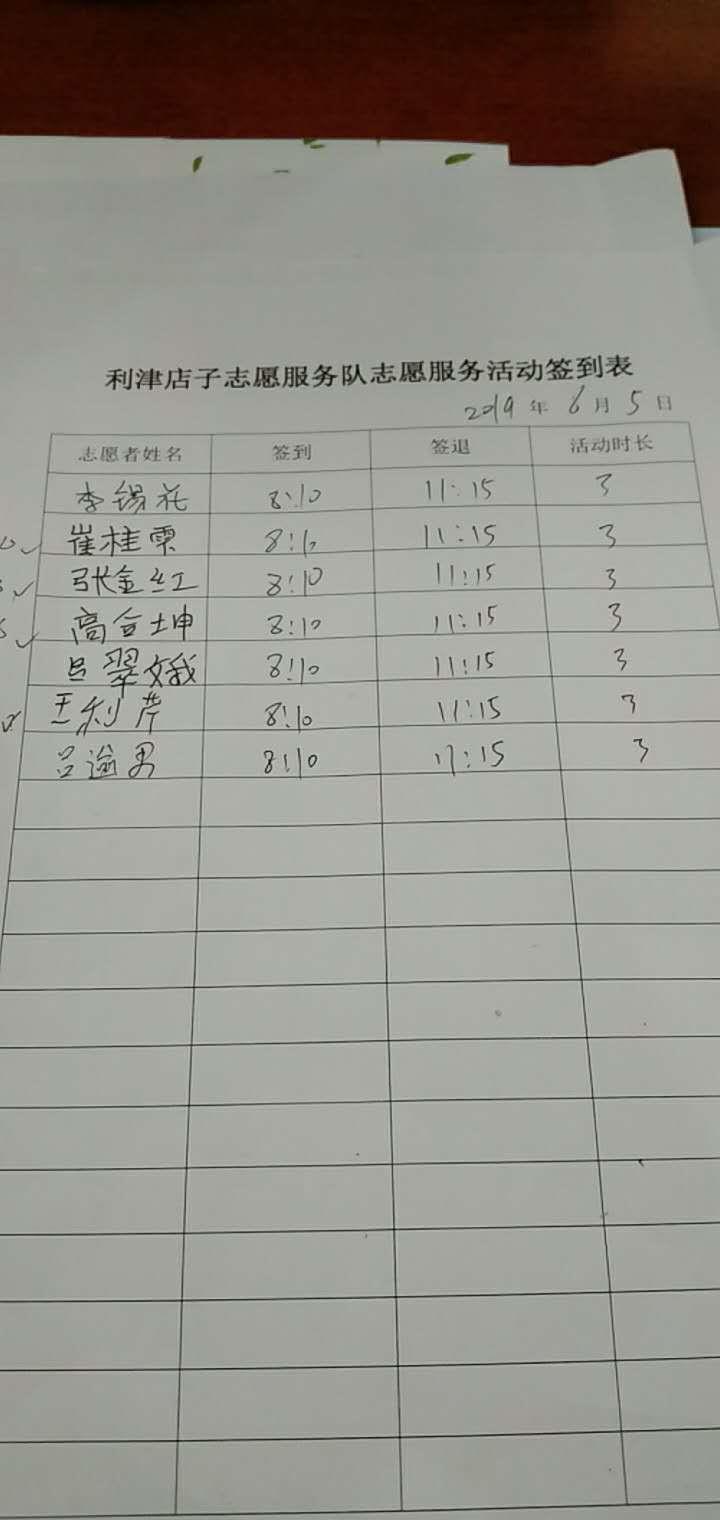 利津店子志愿服务队志愿服务活动签到表
2019年6月5日
志愿者姓名 签到 签退 活动时长
李锡花 8:10 11:15 3
崔桂雲 8:10 11:15 3
张金红 8:10 11:15 3
高合坤 8:10 11:15 3
吕翠娥 8:10 11:15 3
王利芹 8:10 11:15 3
吕逾男 8:10 11:15 3